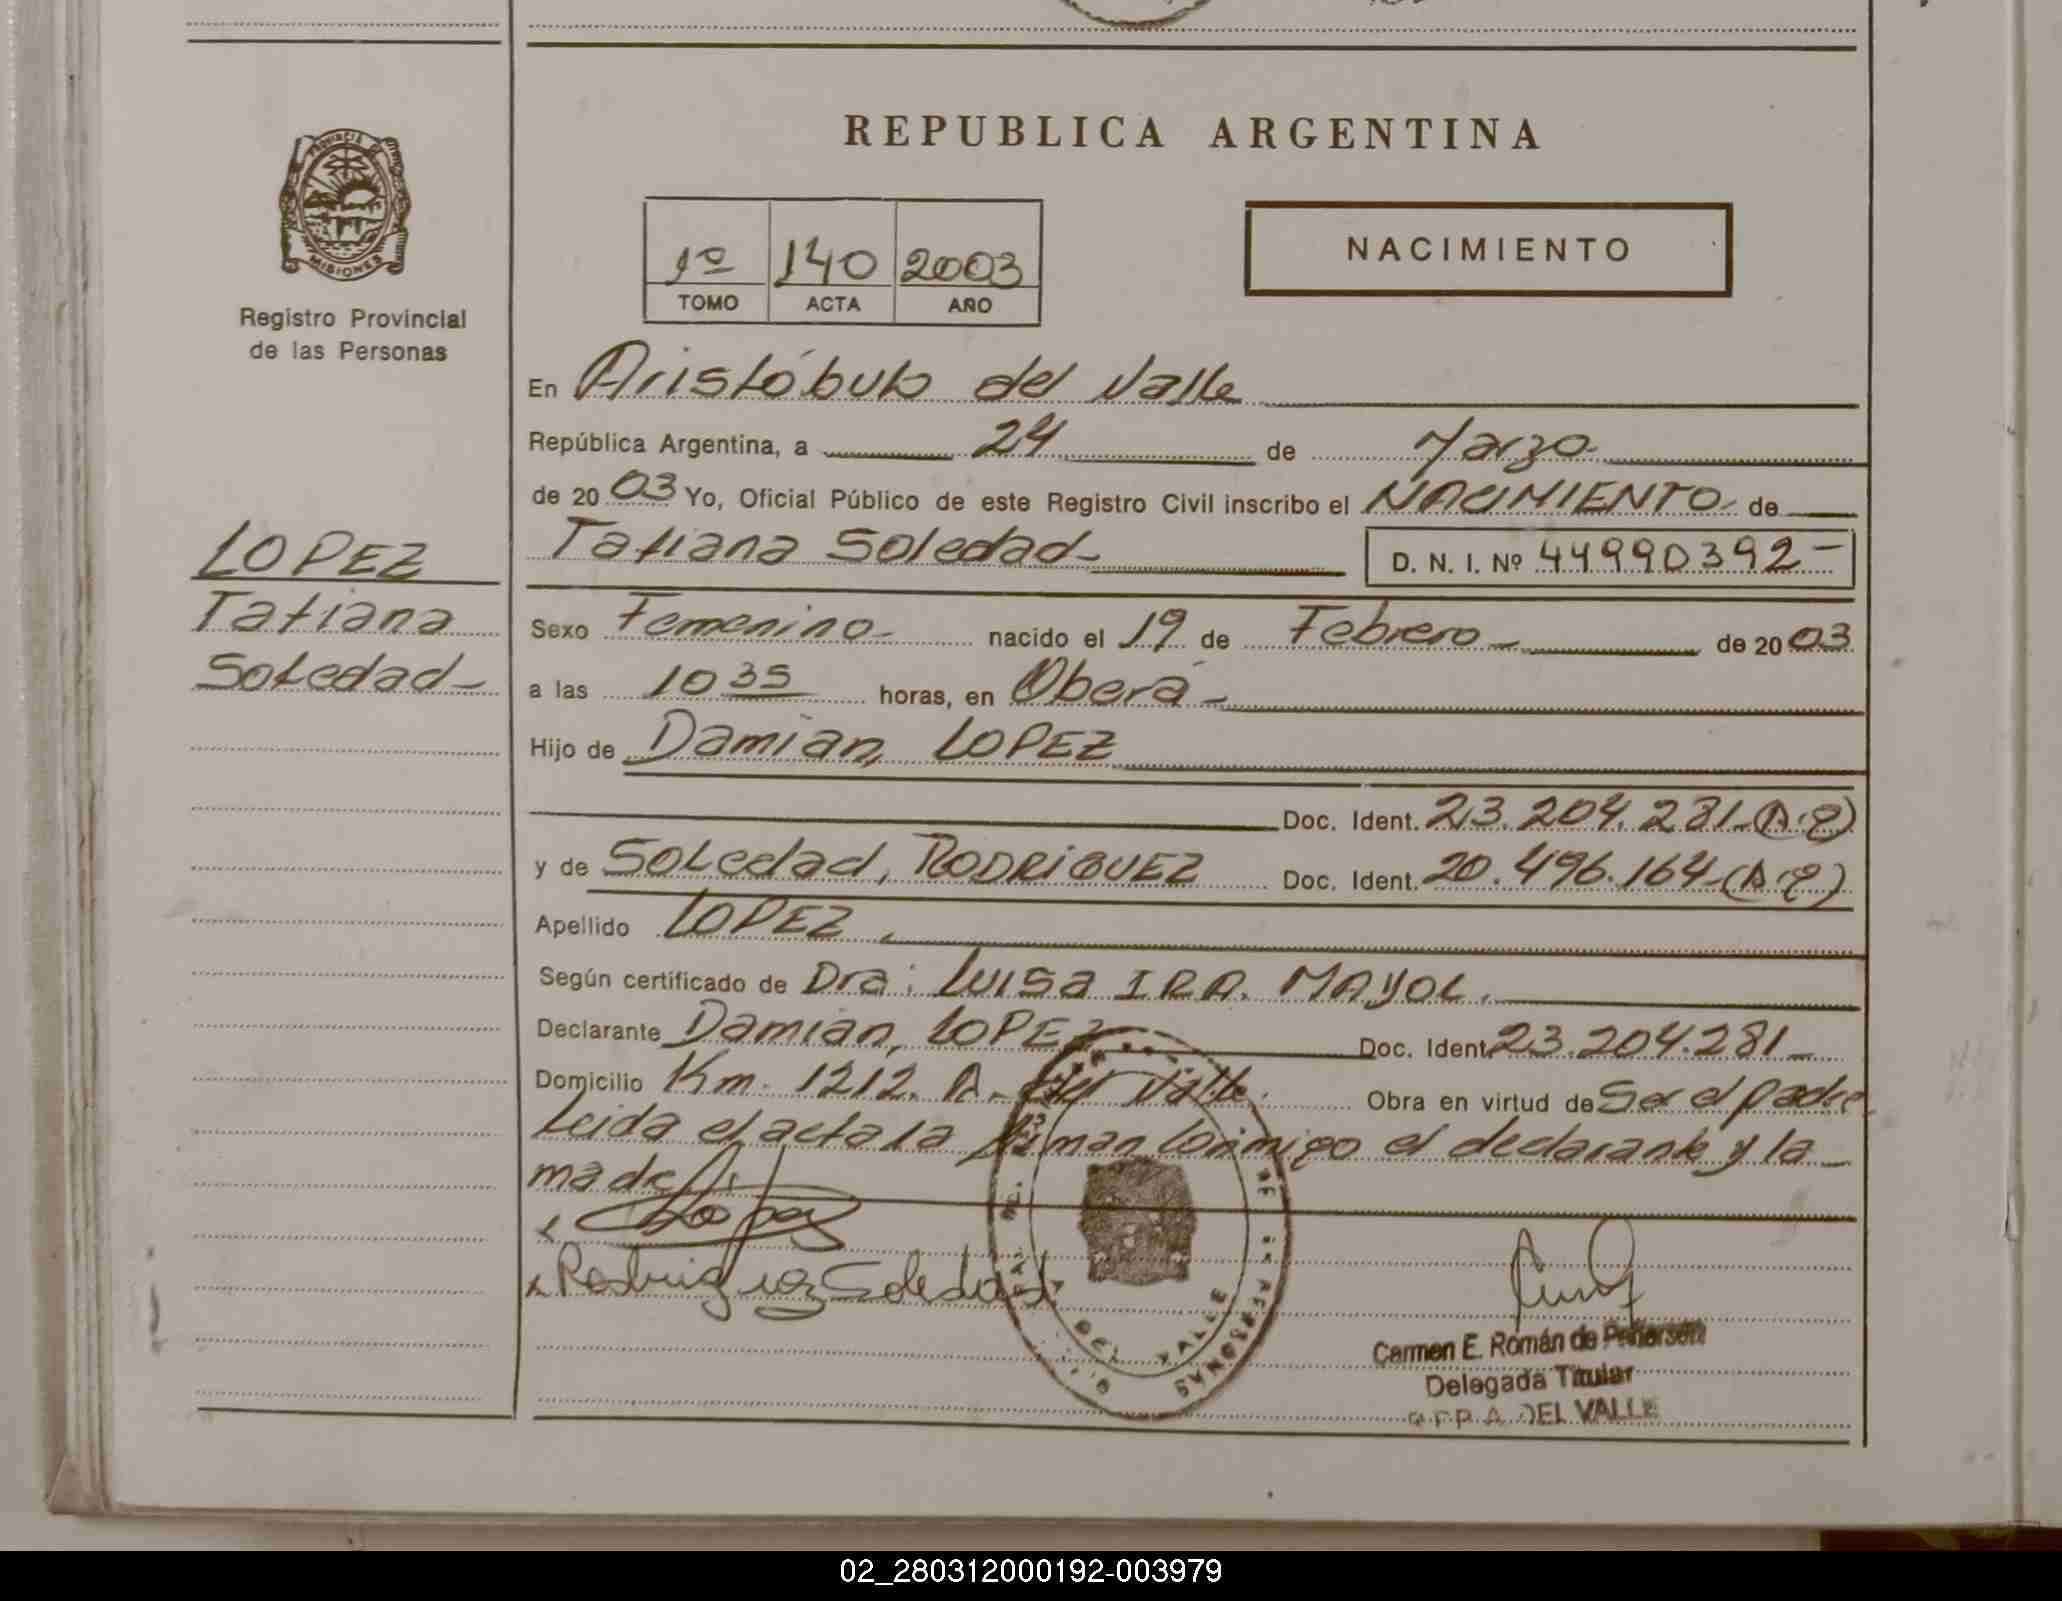 REPUBLICA ARGENTINA
PROVINCIA DE
MISIONES
Registro Provincial
de las Personas
1º 140 2003
TOMO ACTA AÑO
NACIMIENTO
En Aristóbulo del Valle
República Argentina, a 24 de Marzo
de 2003 Yo, Oficial Público de este Registro Civil inscribo el NACIMIENTO de
Tatiana Soledad D. N. I. Nº 44990392-
LOPEZ
Tatiana
Soledad
Sexo Femenino nacido el 19 de Febrero de 2003
a las 10 35 horas, en Oberá
Hijo de Damián, LOPEZ
Doc. Ident. 23.204.281 (A.9)
y de Soledad, RODRIGUEZ Doc. Ident. 20.496.164 (A.9)
Apellido LOPEZ.
Según certificado de Dra: Luisa IRA. MAYOL.
Declarante Damián, LOPEZ Doc. Ident. 23.204.281
Domicilio Km. 1212. A. del Valle. Obra en virtud de Ser el padre.
Leida el acta la firman conmigo el declarante y la
madre
Lopez
Rodriguez Soledad
DEL VALLE
Carmen E. Román de Petterson
Delegada Titular
DEL VALLE
02_280312000192-003979